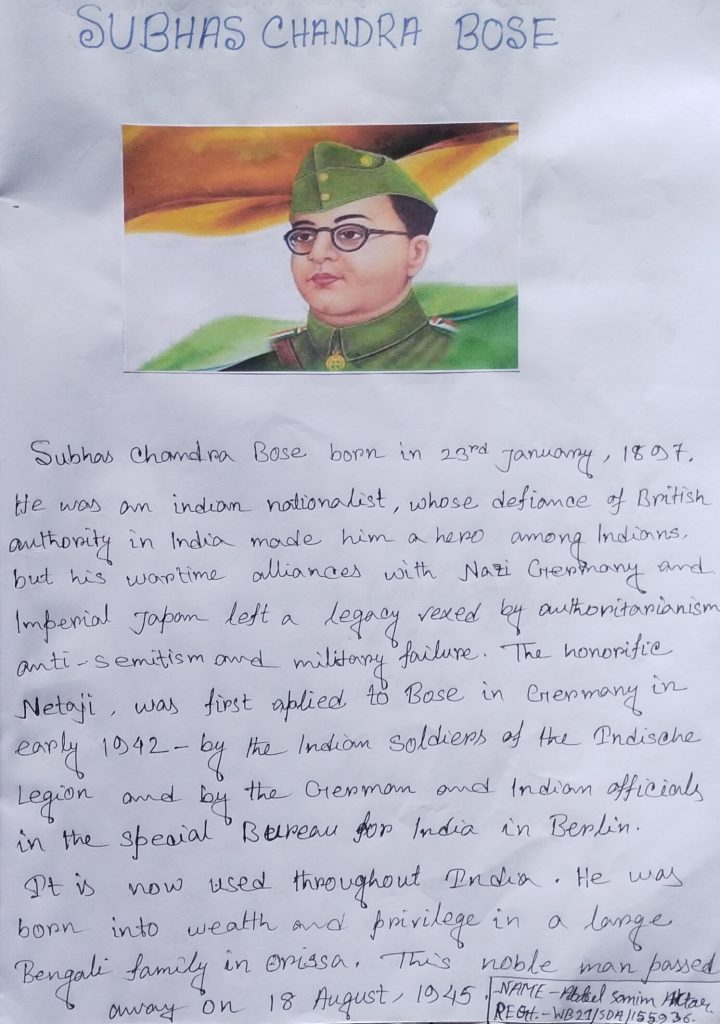 SUBHAS CHANDRA BOSE
Subhas Chandra Bose born in 23rd January, 1897.
He was an indian nationalist, whose defiance of British
authority in India made him a hero among Indians,
but his wartime alliances with Nazi Germany and
Imperial Japan left a legacy vexed by authoritarianism
anti-semitism and military failure. The honorific
Netaji, was first aplied to Bose in Germany in
early 1942 - by the Indian soldiers of the Indische
Legion and by the German and Indian officials
in the special Bureau for India in Berlin.
It is now used throughout India. He was
born into wealth and privilege in a large
Bengali family in Orissa. This noble man passed
away on 18 August, 1945.
NAME - Abdul Samim Aktar.
REGt. - WB21/SDA/155936.